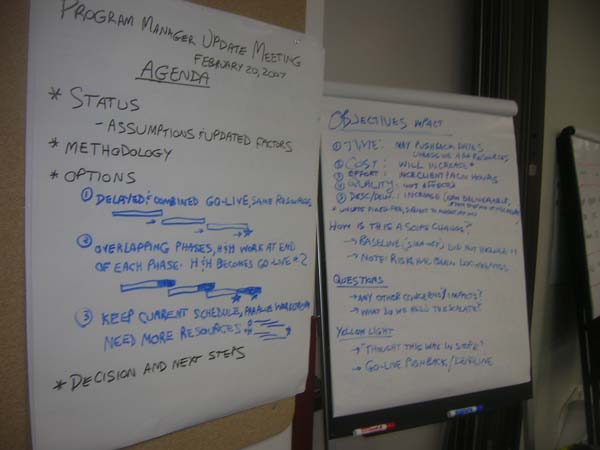 PROGRAM MANAGER UPDATE MEETING
FEBRUARY 20, 2007
AGENDA
* STATUS
- ASSUMPTIONS & UPDATED FACTORS
* METHODOLOGY
* OPTIONS
① DELAYED & COMBINED GO-LIVE, SAME RESOURCES
② OVERLAPPING PHASES, H&H WORK AT END
OF EACH PHASE. H&H BECOMES GO-LIVE #2
③ KEEP CURRENT SCHEDULE, PARALLEL
NEED MORE RESOURCES
* DECISION AND NEXT STEPS
OBJECTIVES IMPACT
① TIME: MAY PUSHBACK DATES
UNLESS WE ADD RESOURCES
② COST: WILL INCREASE*
③ EFFORT: HOURS
④ QUALITY: NOT AFFECTED
⑤ INCREASE (NEW DELIVERABLE,
* UNLESS FIXED-FEE,
HOW IS THIS A SCOPE CHANGE?
→ BASELINE DID NOT INCLUDE
→ NOTE: RISK HAS BEEN DOCUMENTED
QUESTIONS
→ ANY OTHER CONCERNS/IMPACTS?
→ WHAT DO WE NEED TO ESCALATE?
YELLOW LIGHT
→ "THOUGHT THIS WAS IN SCOPE"
→ GO-LIVE PUSHBACK/DEADLINE